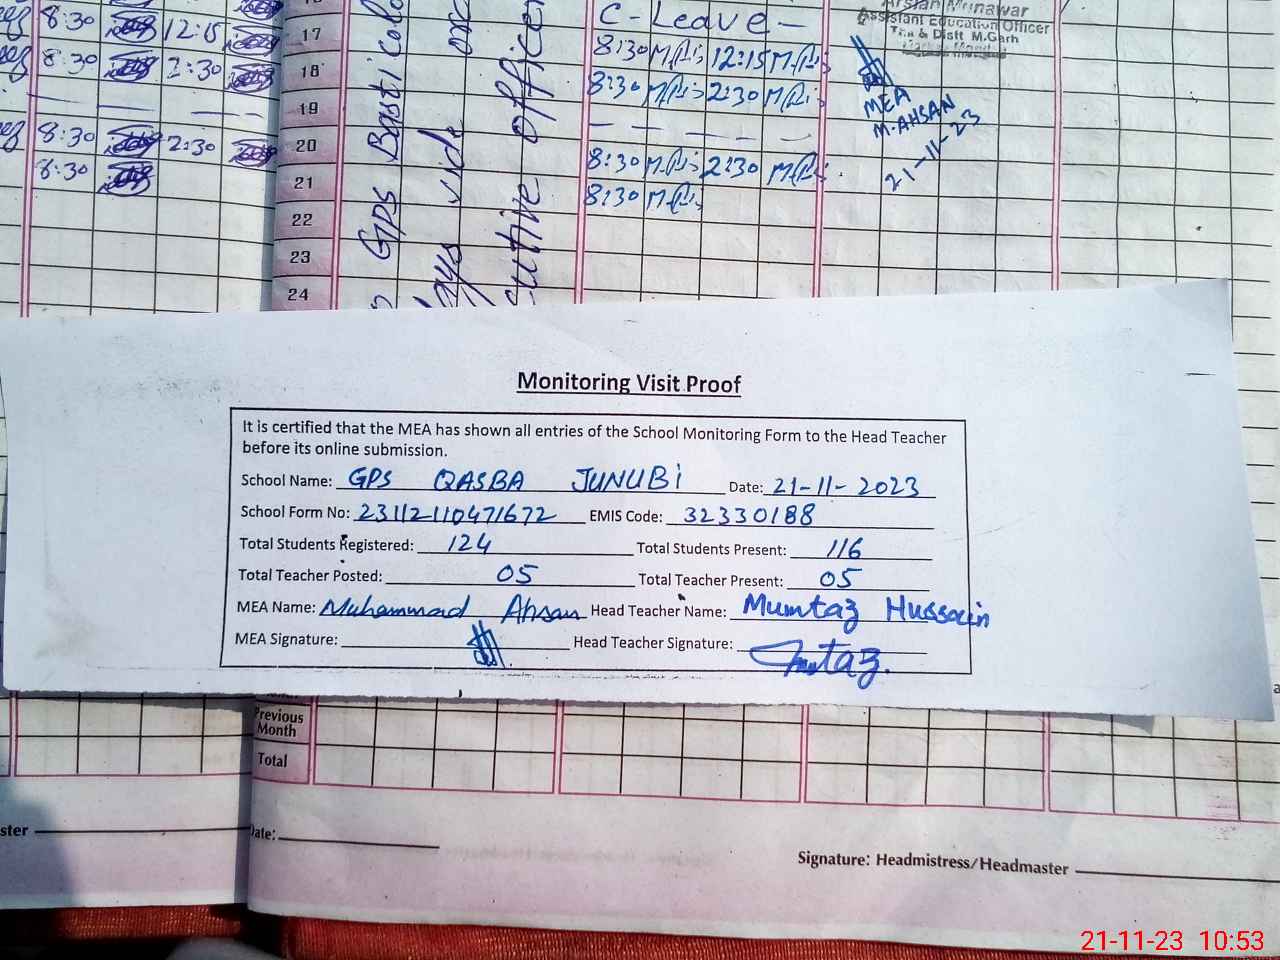 8:30 12:15
17 C- Leave -
8:30 2:30
18 8:30 12:15
19 8:30 2:30
20
8:30 2:30
21 8:30 2:30
8:30
22 8:30
23
24
GPS Basti
vide
Officer
Arslan Munawar
Assistant Education Officer
& Distt M.Garh
MEA
M.AHSAN
21-11-23
Monitoring Visit Proof
It is certified that the MEA has shown all entries of the School Monitoring Form to the Head Teacher
before its online submission.
School Name: GPS QASBA JUNUBi Date: 21-11-2023
School Form No: 23112110471672 EMIS Code: 32330188
Total Students Registered: 124 Total Students Present: 116
Total Teacher Posted: 05 Total Teacher Present: 05
MEA Name: Muhammad Ahsan Head Teacher Name: Mumtaz Hussain
MEA Signature: Head Teacher Signature: Mumtaz.
Previous
Month
Total
ster Date:
Signature: Headmistress/Headmaster
21-11-23 10:53